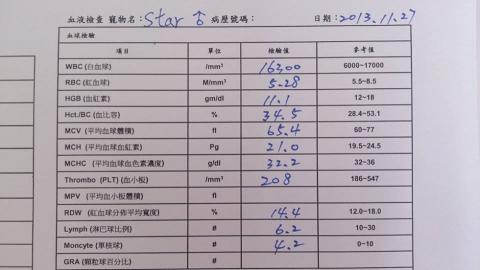 血液檢查 寵物名：Star ♂ 病歷號碼： 日期：2013.11.27
血球檢驗
項目 單位 檢驗值 參考值
WBC (白血球) /mm³ 16300 6000~17000
RBC (紅血球) M/mm³ 5.28 5.5~8.5
HGB (血紅素) gm/dl 11.1 12~18
Hct./BC (血比容) % 34.5 28.4~53.1
MCV (平均血球體積) fl 65.4 60~77
MCH (平均血球血紅素) Pg 21.0 19.5~24.5
MCHC (平均血球血色素濃度) g/dl 32.2 32~36
Thrombo (PLT) (血小板) /mm³ 208 186~547
MPV (平均血小板體積) fl
RDW (紅血球分佈平均寬度) % 14.4 12.0~18.0
Lymph (淋巴球比例) # 6.2 10~30
Moncyte (單核球) # 4.2 0~10
GRA (顆粒球百分比) #